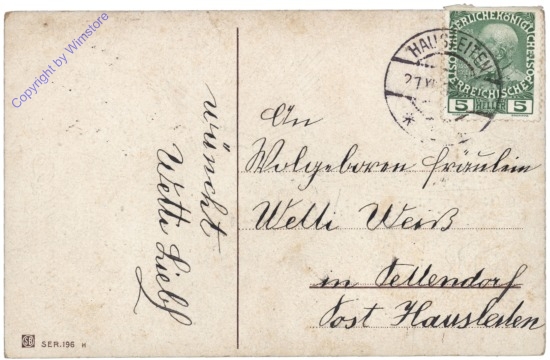 Copyright by Wimstore
wüncht
Wetti Liebl
HAUSLEITEN
KAISERLICHE KÖNIGLICHE
ÖSTERREICHISCHE POST
5 HELLER 5
An
Wolgeboren Fräulein
Welli Weiß
in Pettendorf
Post Hausleiten
SER.196 H